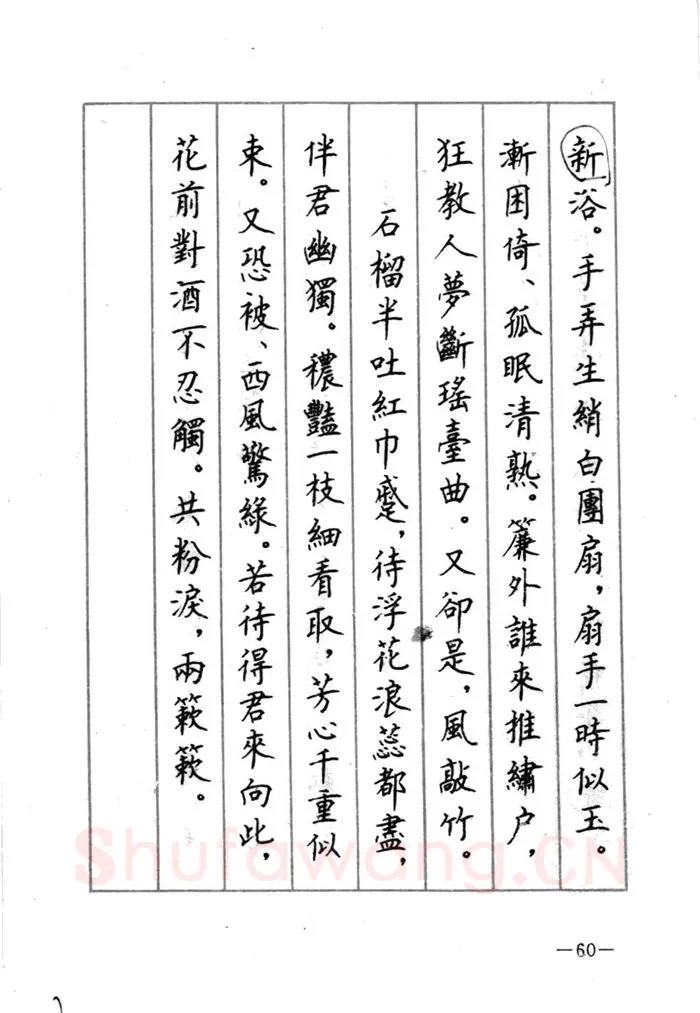 新浴。手弄生綃白團扇，扇手一時似玉。
漸困倚、孤眠清熟。簾外誰來推繡户，
狂教人夢斷瑤臺曲。又卻是，風敲竹。
石榴半吐紅巾蹙，待浮花浪蕊都盡，
伴君幽獨。穠豔一枝細看取，芳心千重似
束。又恐被、西風驚綠。若待得君來向此，
花前對酒不忍觸。共粉淚，兩簌簌。
—60—
Shufawang.CN